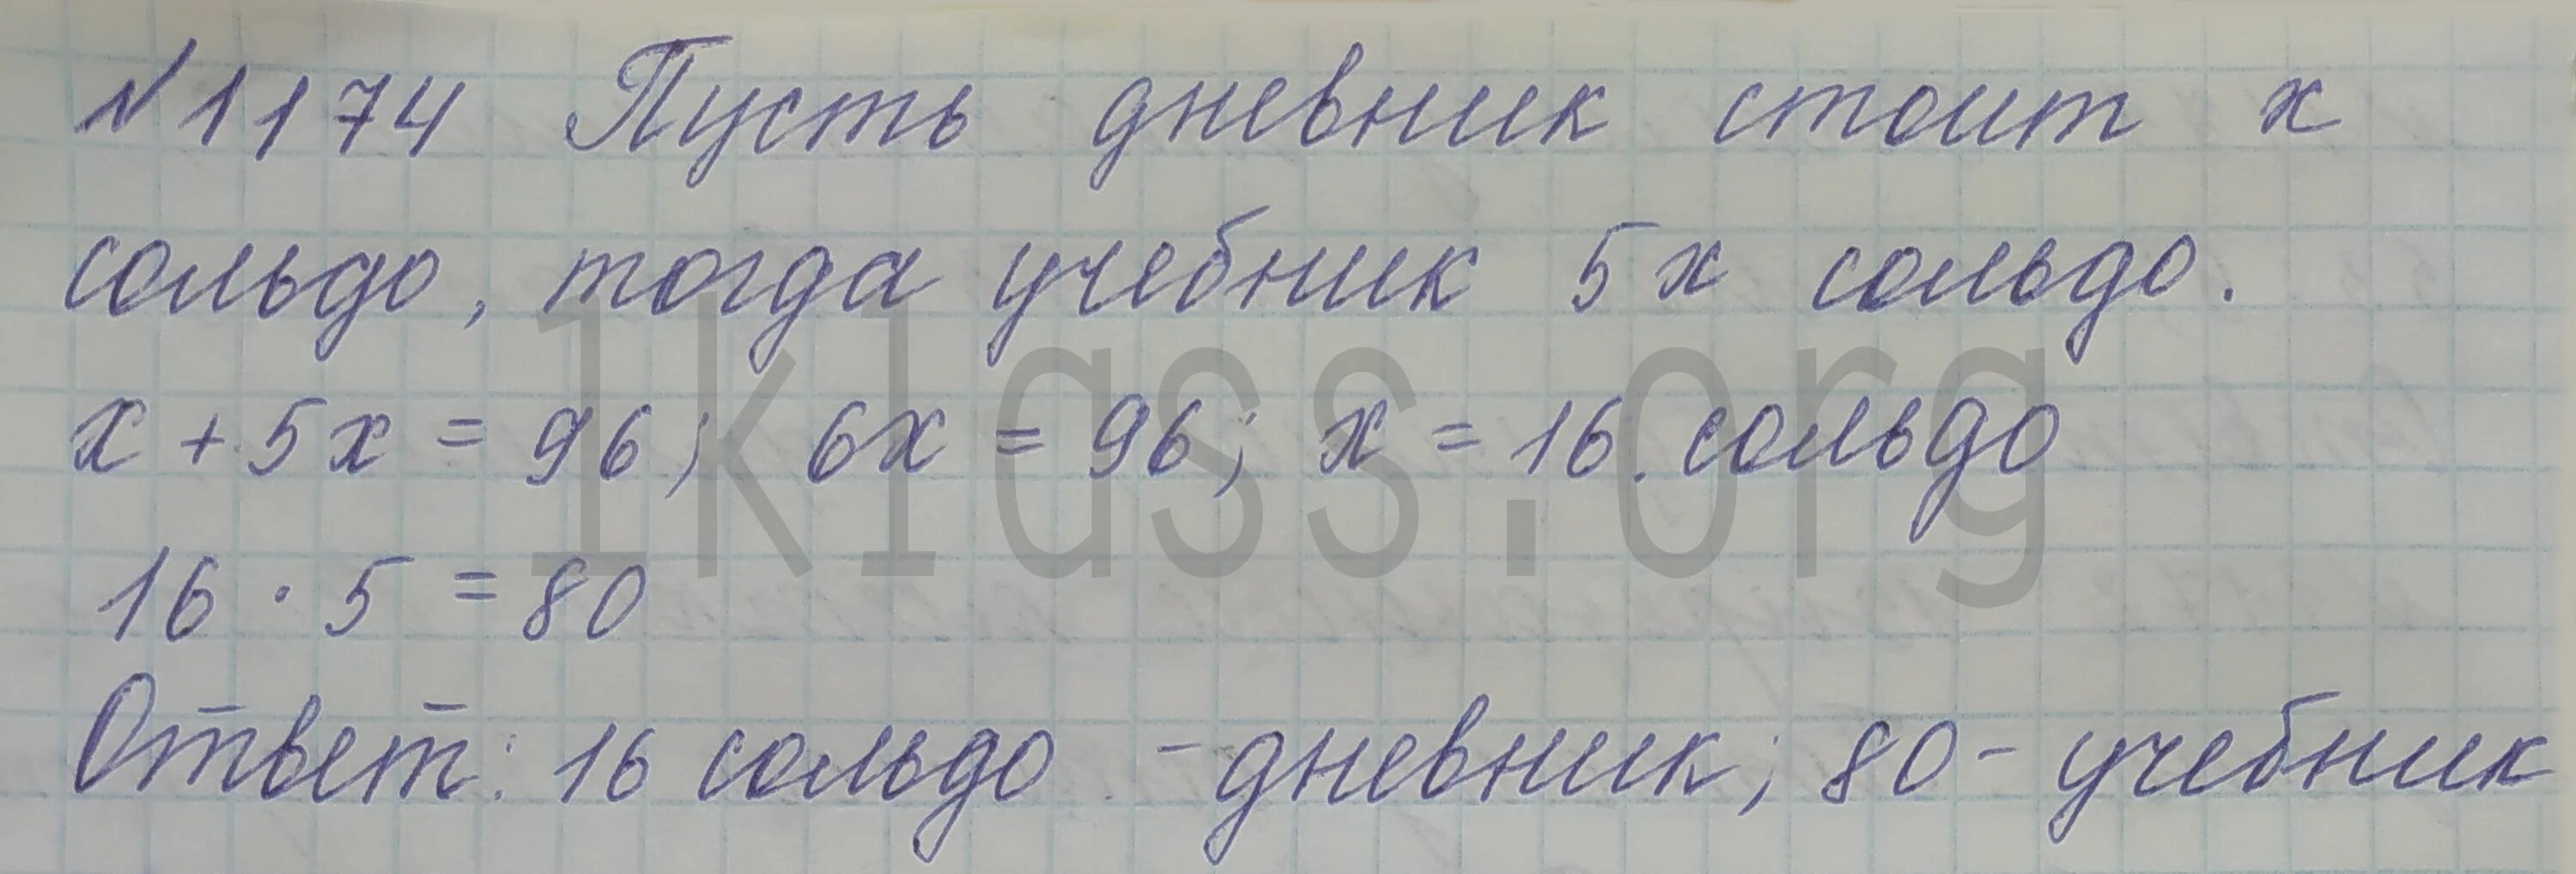 №1174 Пусть дневник стоит х
сольдо, тогда учебник 5х сольдо.
х + 5х = 96; 6х = 96; х = 16. сольдо
1klass.org
16 · 5 = 80
Ответ: 16 сольдо - дневник; 80 - учебник